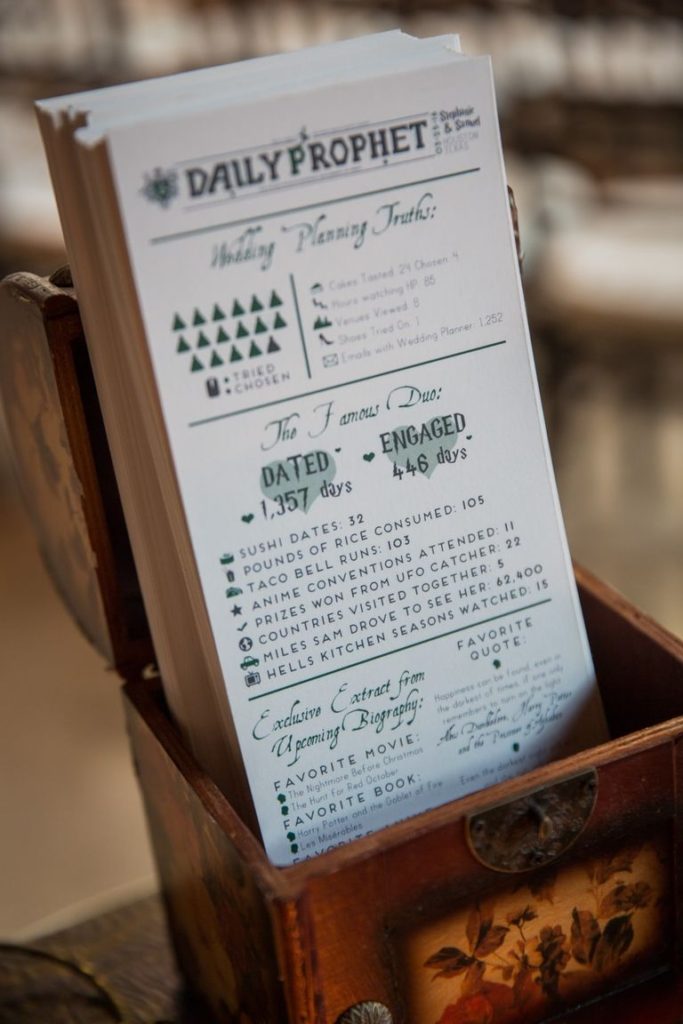 DAILY PROPHET
Stephanie
& Samuel
HOUSTON
TEXAS
Wedding Planning Truths:
: TRIED
: CHOSEN
Cakes Tasted: 24 Chosen: 4
Hours watching HP: 85
Venues Viewed: 8
Shoes Tried On: 1
Emails with Wedding Planner: 1,252
The Famous Duo:
DATED
1,357 days
ENGAGED
446 days
SUSHI DATES: 32
POUNDS OF RICE CONSUMED: 105
TACO BELL RUNS: 103
ANIME CONVENTIONS ATTENDED: 11
PRIZES WON FROM UFO CATCHER: 22
COUNTRIES VISITED TOGETHER: 5
MILES SAM DROVE TO SEE HER: 62,400
HELLS KITCHEN SEASONS WATCHED: 15
Exclusive Extract from
Upcoming Biography:
FAVORITE MOVIE:
The Nightmare Before Christmas
The Hunt For Red October
FAVORITE BOOK:
Harry Potter and the Goblet of Fire
Les Misérables
FAVORITE
QUOTE:
Happiness can be found, even in
the darkest of times, if one only
remembers to turn on the light.
Albus Dumbledore, Harry Potter
and the Prisoner of Azkaban
Even the darkest